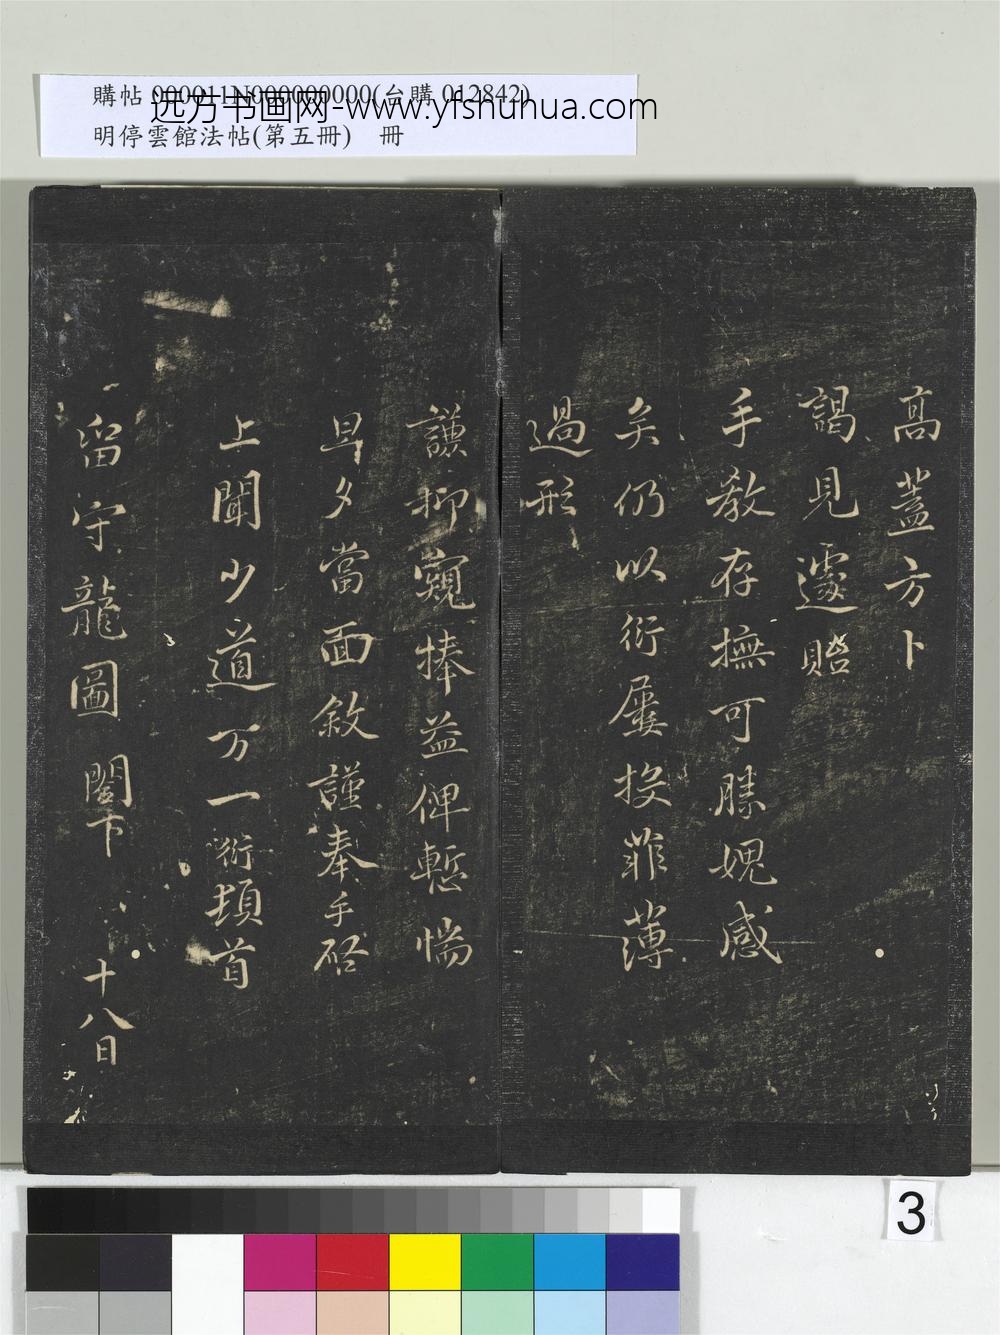 購帖 000011N000000000(台購 012842)
远方书画网-www.yfshuhua.com
明停雲館法帖(第五冊) 冊
高蓋方卜
謁見遽貽
手教存撫可勝媿感
矣仍以衍屢投菲薄
過形
謙抑窺捧益俾慙惴
旦夕當面敘謹奉手啓
上聞少道万一衍頓首
留守龍圖閣下 十八日
3